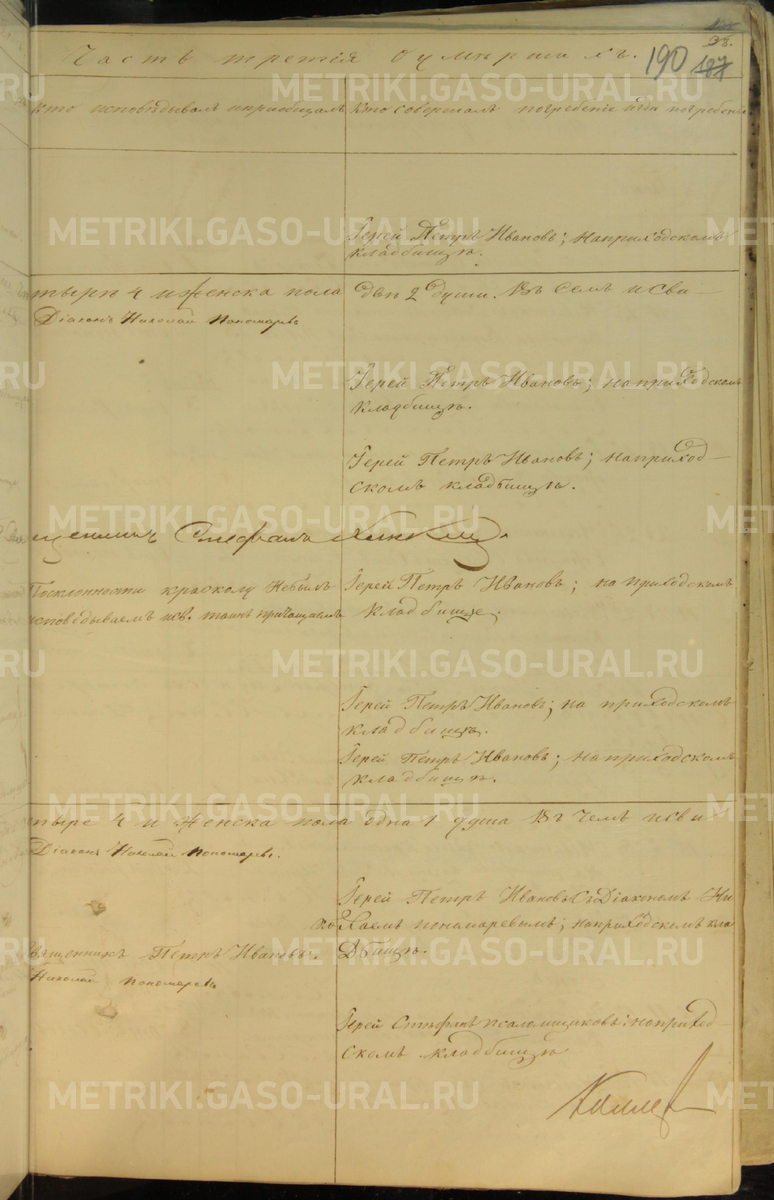 38.
190 187
Часть третія о умершихъ.
кто исповѣдывалъ и пріобщалъ
Кто совершалъ погребеніе и гдѣ погребены
Іерей Петръ Ивановъ; на приходскомъ
кладбищѣ.
тыре 4 и женска пола двѣ 2 души. Въ семъ и сви-
Діаконъ Николай Пономаревъ
Іерей Петръ Ивановъ; на приходскомъ
кладбищѣ.
Іерей Петръ Ивановъ; на приход-
скомъ кладбищѣ.
щенникъ Стефанъ
По склонности къ расколу не былъ
исповѣдываемъ и св. таинъ причащаемъ
Іерей Петръ Ивановъ; на приходскомъ
кладбище.
Іерей Петръ Ивановъ; на приходскомъ
кладбищѣ.
Іерей Петръ Ивановъ; на приходскомъ
кладбищѣ.
тыре 4 и женска пола одна 1 душа Въ чемъ и сви
Діаконъ Николай Пономаревъ.
Іерей Петръ Ивановъ съ Діакономъ Ни
колаемъ Пономаревымъ; на приходскомъ кла
дбищѣ.
вященникъ Петръ Ивановъ.
Николай Пономаревъ
Іерей Стефанъ Псаломщиковъ; на приход-
скомъ кладбищѣ
METRIKI.GASO-URAL.RU